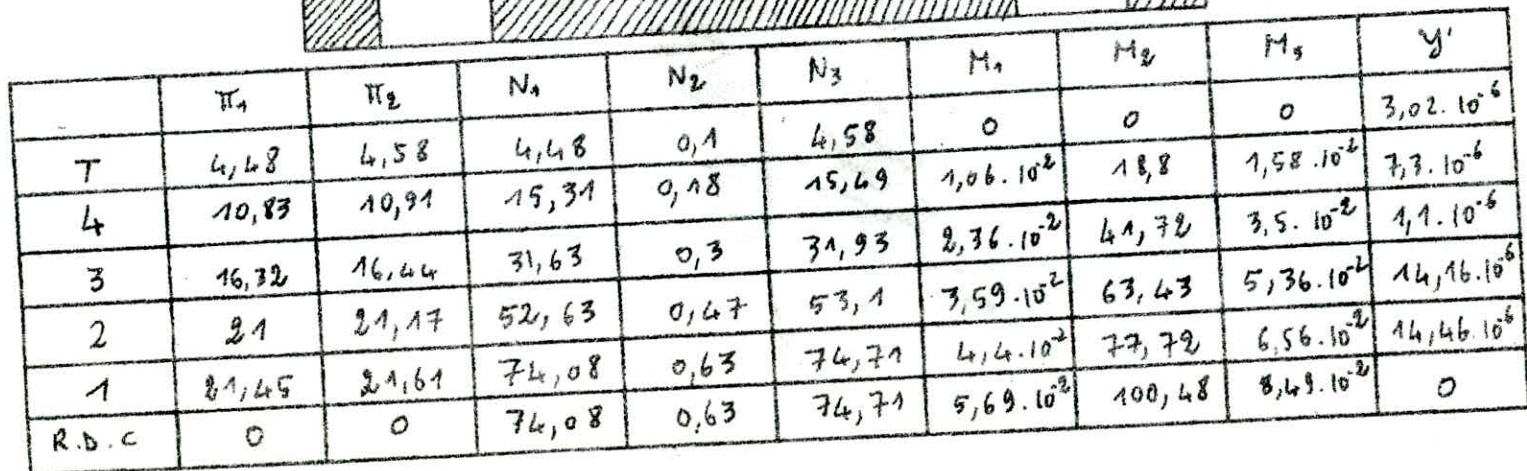 π₁ π₂ N₁ N₂ N₃ M₁ M₂ M₃ y'
T 4,48 4,58 4,48 0,1 4,58 0 0 0 3,02.10⁻⁶
4 10,83 10,91 15,31 0,18 15,49 1,06.10⁻² 18,8 1,58.10⁻² 7,3.10⁻⁶
3 16,32 16,44 31,63 0,3 31,93 2,36.10⁻² 41,72 3,5.10⁻² 1,1.10⁻⁶
2 21 21,17 52,63 0,47 53,1 3,59.10⁻² 63,43 5,36.10⁻² 14,16.10⁻⁶
1 21,45 21,61 74,08 0,63 74,71 4,4.10⁻² 77,72 6,56.10⁻² 14,46.10⁻⁶
R.D.C 0 0 74,08 0,63 74,71 5,69.10⁻² 100,48 8,49.10⁻² 0